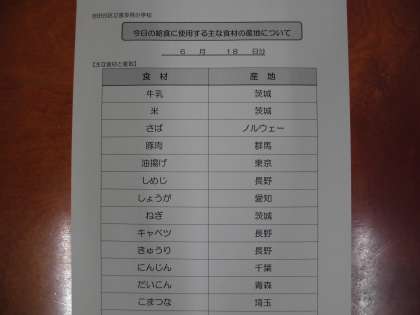 今日の給食に使用する主な食材の産地について
6 月 18 日分
【主な食材と産地】
食 材 産 地
牛乳 茨城
米 茨城
さば ノルウェー
豚肉 群馬
油揚げ 東京
しめじ 長野
しょうが 愛知
ねぎ 茨城
キャベツ 長野
きゅうり 長野
にんじん 千葉
だいこん 青森
こまつな 埼玉